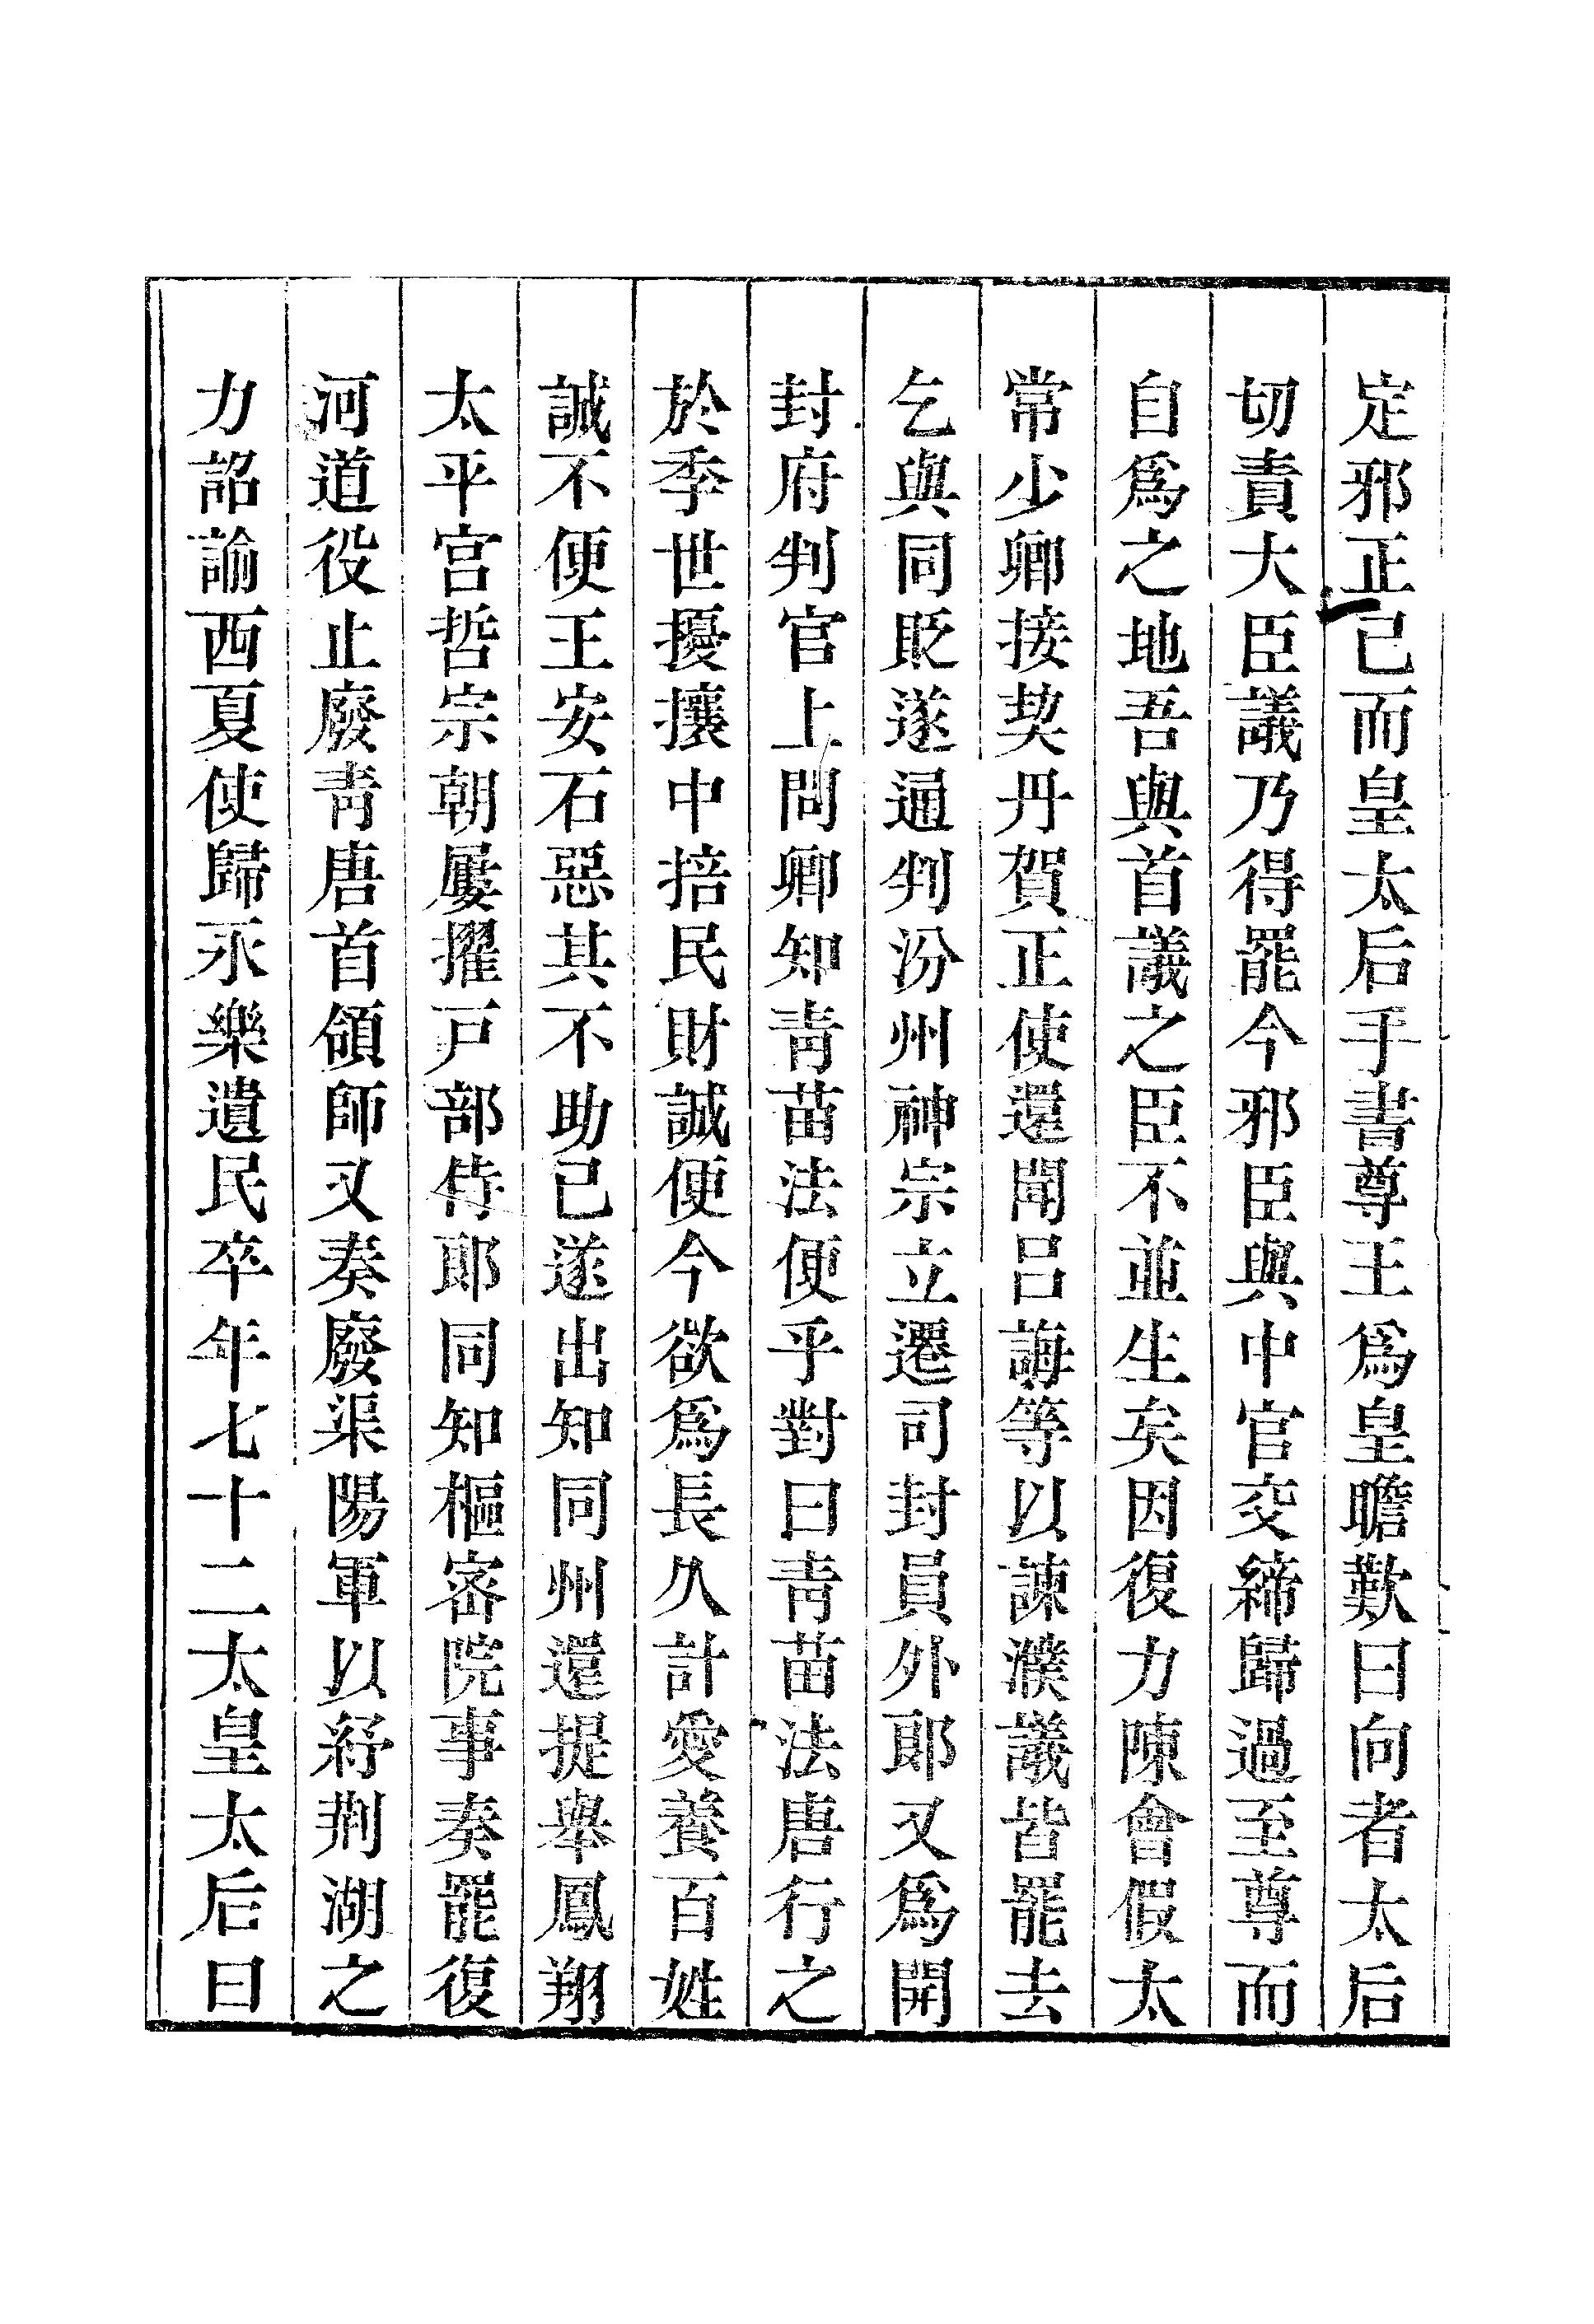 定邪正已而皇太后手書尊王爲皇瞻歎曰向者太后
切責大臣議乃得罷今邪臣與中官交締歸過至尊而
自爲之地吾與首議之臣不並生矣因復力陳會假太
常少卿接契丹賀正使還聞呂誨等以諫濮議皆罷去
乞與同貶遂通判汾州神宗立遷司封員外郎又爲開
封府判官上問卿知靑苗法便乎對曰靑苗法唐行之
於季世擾攘中掊民財誠便今欲爲長久計愛養百姓
誠不便王安石惡其不助已遂出知同州還提舉鳳翔
太平宮哲宗朝屢擢戸部侍郎同知樞密院事奏罷復
河道役止廢靑唐首領師又奏廢渠陽軍以紓荆湖之
力詔諭西夏使歸永樂遺民卒年七十二太皇太后曰